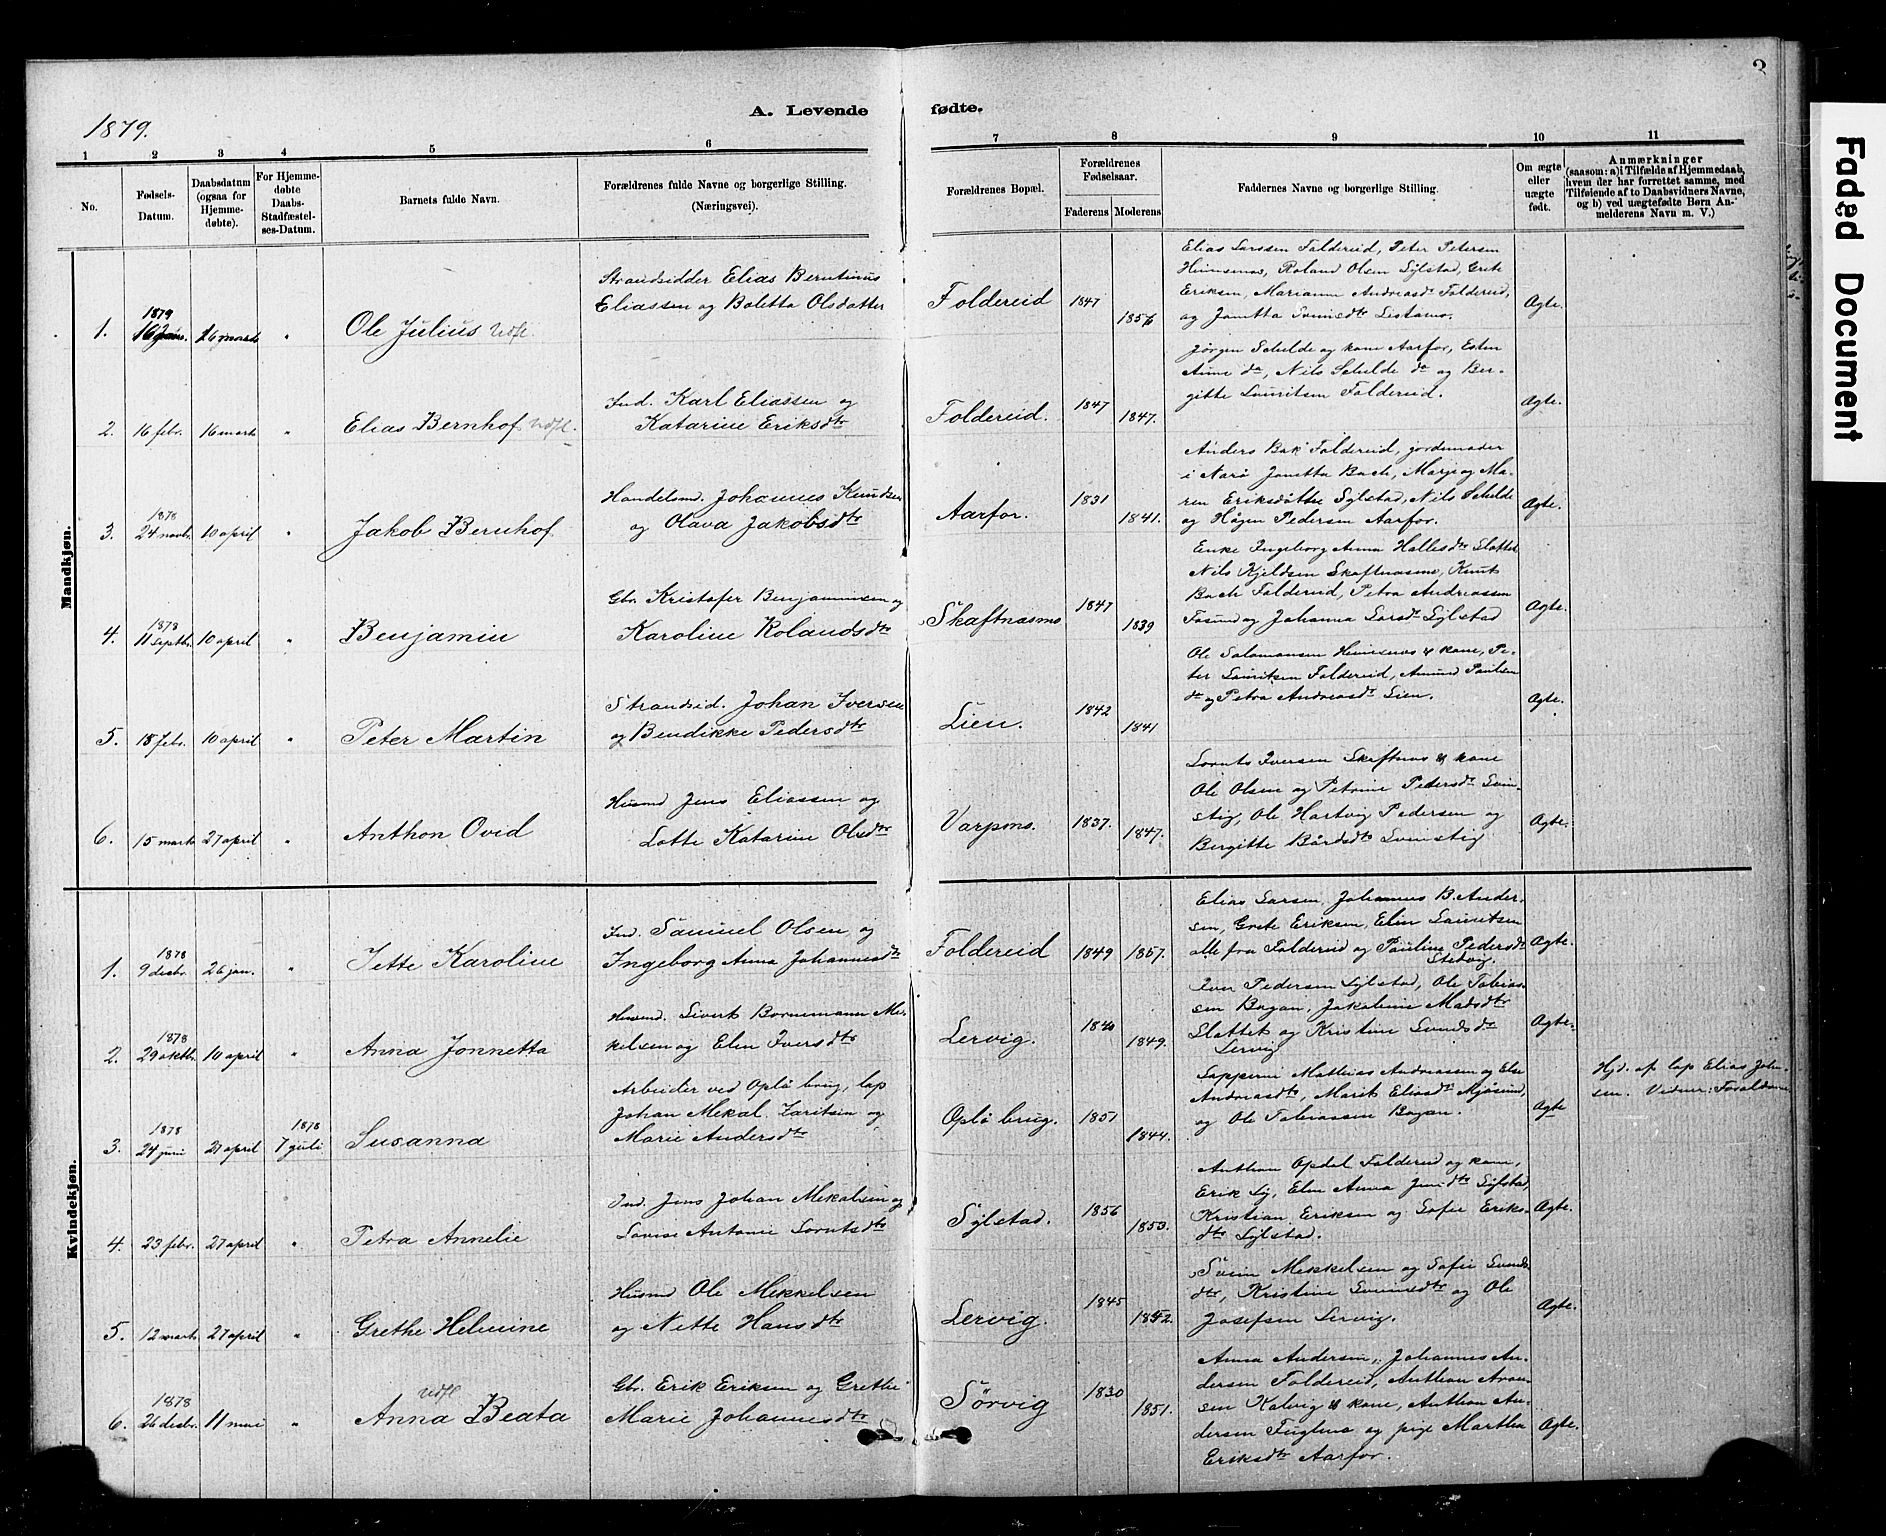 3
1879.
A. Levende fødte.
1 2 3 4 5 6 7 8 9 10 11
No.
Fødsels-
Datum.
Daabsdatum
(ogsaa for
Hjemme-
døbte).
For Hjemme-
døbte
Daabs-
Stadfæstel-
ses-Datum.
Barnets fulde Navn.
Forældrenes fulde Navne og borgerlige Stilling.
(Næringsvei).
Forældrenes Bopæl.
Forældrenes
Fødselsaar.
Faderens Moderens
Faddernes Navne og borgerlige Stilling.
Om ægte
eller
uægte
født.
Anmærkninger
(saasom: a) i Tilfælde af Hjemmedaab,
hvem der har forrettet samme, med
Tilføiende af to Daabsvidners Navne,
og b) ved uægtefødte Børn An-
melderens Navn m. V.)
Mandkjøn.
1.
1879
16 Jan.
26 marts
"
Ole Julius Udfl.
Strandsidder Elias Berntinus
Eliassen og Boletta Olsdatter
Foldereid
1847
1856
Elias Larssen Foldereid, Peter Petersen
Heimsnes, Roland Olsen Sylstad, Grete
Eriksen, Marianne Andreasdr Foldereid,
og Jonetta
Ægte.
2.
16 febr.
16 marts
"
Elias Bernhof Udfl.
Ind. Karl Eliassen og
Katarine Eriksdtr
Foldereid.
1847
1847.
Jørgen Schelde og kone Aarfor, Esten
Aune do, Nils Schelde do og Ber-
gitte Lauritsen Foldereid.
Ægte.
3.
1878
24 novbr.
10 april
"
Jakob Bernhof
Handelsmd. Johannes Knudsen
og Olava Jakobsdtr
Aarfor.
1831
1841.
Anders Bak Foldereid, jordemoder
i Nærø Jonetta Bach, Marje og Ma-
ren Eriksdøttre Sylstad, Nils Schelde
og Hågen Pedersen Aarfor.
Ægte.
4.
1878
11 septbr.
10 april
"
Benjamin
Gbr. Kristofer Benjaminsen og
Karoline Rolandsdtr
Skaftnæsms
1847
1839
Enke Ingeborg Anna Hallesdtr Slottet
Nils Kjeldsen Skaftnæsme, Knut
Bach Foldereid, Petra Andreassen
Fosund og Johanna Larsdr Sylstad
Ægte.
5.
18 febr.
10 april
"
Peter Martin
Strandsid. Johan Iversen
og Bendikke Pedersdtr
Lien.
1842
1841
Ole Salomonsen Heimsnes & kone, Pe-
ter Lauritsen Foldereid, Amund Paulsen
do og Petra Andreasdr Lien.
Ægte.
6.
15 marts
27 april
"
Anthon Ovid
Husmd Jens Eliassen og
Lotte Katarine Olsdtr
Varpnes.
1837.
1847.
Lornts Iversen Skaftnes & kone
Ole Olsen og Petrine Petersdr Svin-
stig, Ole Hartvig Pedersen og
Bergitte Bårdsdtr Svinstig
Ægte.
Kvindekjøn.
1.
1878
9 desbr.
26 jan.
"
Jette Karoline
Ind. Samuel Olsen og
Ingeborg Anna Johannesdtr
Foldereid
1849
1857.
Elias Larsen, Johannes B. Ander-
sen, Grete Eriksen, Elen Lauritsen
alle fra Foldereid og Pauline Pedersdtr
Stedvig.
Ægte.
2.
1878
29 oktbr.
10 april
"
Anna Jonnetta
Husmd. Sivert Bornemann Me-
kelsen og Elen Iversdtr
Lervig.
1840
1849.
Iver Pedersen Sylstad, Ole Tobias-
sen Bogan, Jakobine Madsdtr
Slottet og Kristine Svendsdtr
Lervig
Ægte.
3.
1878
24 juni
21 april
1878
7 juli
Susanna
Arbeider ved Oplø brug, lap
Johan Mekal Zaritsen og
Marie Andersdtr
Oplø brug.
1851
1844.
Lapperne Mathias Andreassen og Else
Andreasdtr, Marit Eliasdr Mjøsund,
og Ole Tobiassen Bogan.
Ægte
Hjd. af lap Elias John-
sen. Vidner: Forældrene
4.
23 febr.
27 april
"
Petra Annelie
Ind. Jens Johan Mekalsen og
Lovise Antonie Lorntsdtr
Sylstad.
1856
1853.
Anthon Opdal Foldereid og kone,
Erik Sy, Elen Anna Jensdtr Sylstad,
Kristian Eriksen og Sofie Eriks-
dtr Sylstad.
Ægte.
5.
12 marts
27 april
"
Grethe Helmine
Husmd Ole Mekkelsen
og Nette Hansdtr
Lervig.
1845
1852.
Svein Mekkelsen og Sofie Svends-
dtr, Kristine Svensdtr og Ole
Josefsen Lervig.
Ægte.
6.
1878
26 desbr.
11 mai
"
Udfl
Anna Beata
Gbr. Erik Eriksen og Grethe
Marie Johannesdtr
Sørvig
1830
1851.
Anna Andersen, Johannes An-
dersen Foldereid, Anthon Aron-
sen Kalvig & kone, Anthon An-
dersen Fuglenes og pige Martha
Eriksdtr Aarfor.
Ægte.
Faded Document